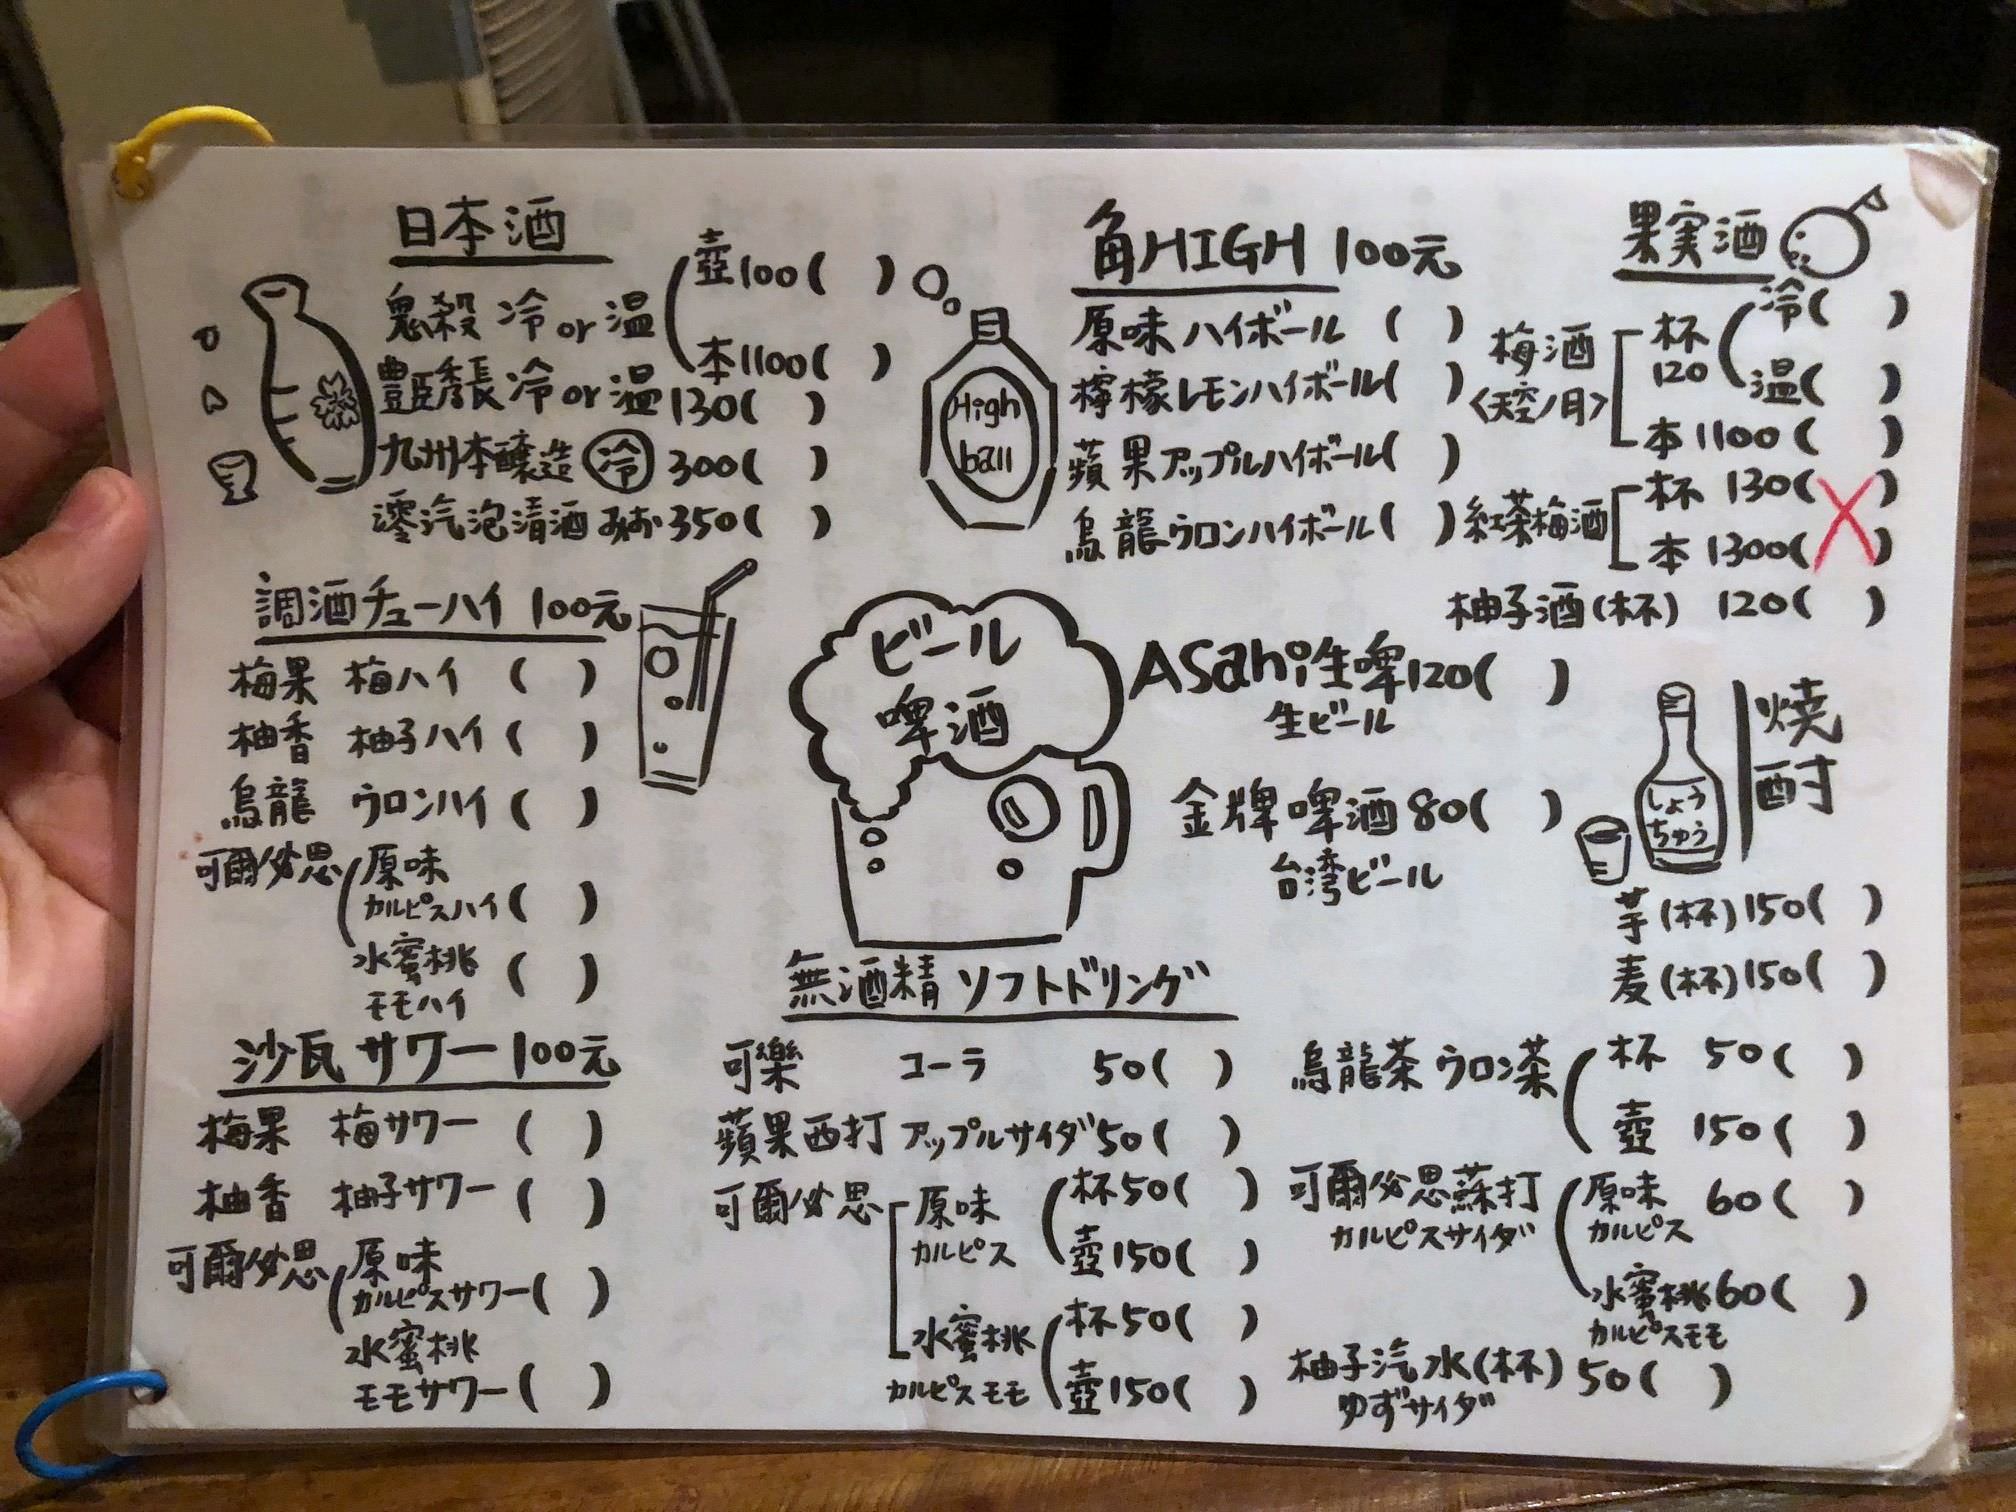 日本酒
鬼殺 冷 or 温
壺100( )
本1100( )
豊臣秀長 冷 or 温 130( )
九州本醸造 冷 300( )
澪汽泡清酒 みお 350( )
調酒チューハイ 100元
梅果 梅ハイ ( )
柚香 柚子ハイ ( )
烏龍 ウロンハイ ( )
可爾必思
原味
カルピスハイ ( )
水蜜桃
モモハイ ( )
沙瓦 サワー 100元
梅果 梅サワー ( )
柚香 柚子サワー ( )
可爾必思
原味
カルピスサワー ( )
水蜜桃
モモサワー ( )
High
ball
角HIGH 100元
原味 ハイボール ( )
檸檬 レモンハイボール ( )
蘋果 アップルハイボール ( )
烏龍 ウロンハイボール ( )
果実酒
梅酒
<天空ノ月>
杯
120
冷( )
温( )
本 1100 ( )
紅茶梅酒
杯 130( )
本 1300( )
柚子酒(杯) 120( )
ビール
啤酒
Asahi生啤120( )
生ビール
金牌啤酒 80( )
台湾ビール
焼酎
しょう
ちゅう
芋(杯)150( )
麦(杯)150( )
無酒精 ソフトドリング
可樂 コーラ 50( )
蘋果西打 アップルサイダ 50( )
可爾必思
原味
カルピス
杯50( )
壺150( )
水蜜桃
カルピスモモ
杯50( )
壺150( )
烏龍茶 ウロン茶
杯 50( )
壺 150( )
可爾必思蘇打
カルピスサイダ
原味 60( )
カルピス
水蜜桃60( )
カルピスモモ
柚子汽水(杯) 50( )
ゆずサイダ